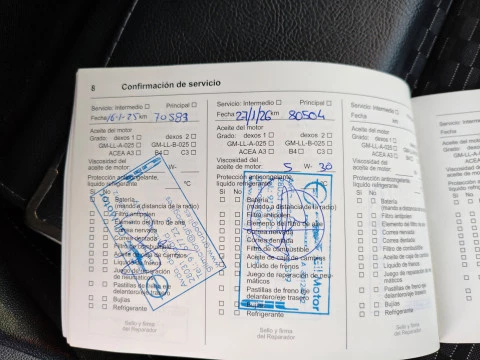 8 Confirmación de servicio
Servicio: Intermedio Principal
Fecha 16-1-25 km 70583
Aceite del motor
Grado: dexos 1 dexos 2
GM-LL-A-025 GM-LL-B-025
ACEA A3 B4 C3
Viscosidad del
aceite de motor W-
Protección anticongelante,
líquido refrigerante °C
Si No
Batería
(mando a distancia de la radio)
Filtro antipolen
Elemento del filtro de aire
Correa nervada
Correa dentada
Líquido de frenos
Juego de reparación
de neumáticos
Pastillas de freno eje
delantero/eje trasero
Bujías
Refrigerante
Sello y firma
del Reparador
Servicio: Intermedio Principal
Fecha 23/1/26 km 80504
Aceite del motor
Grado: dexos 1 dexos 2
GM-LL-A-025 GM-LL-B-025
ACEA A3 B4 C3
Viscosidad del
aceite de motor 5 W- 30
Protección anticongelante,
líquido refrigerante °C
Si No
Batería
(mando a distancia de la radio)
Filtro antipolen
Elemento del filtro de aire
Correa nervada
Correa dentada
Filtro de combustible
Aceite de caja de cambios
Líquido de frenos
Juego de reparación de neu-
máticos
Pastillas de freno eje
delantero/eje trasero
Bujías
Refrigerante
Motor
Sello y firma
del Reparador
Servicio: Intermedio
Fecha
Aceite del motor
Grado: dexos 1
GM-LL-A-025
ACEA A3
Viscosidad del
aceite de motor
Protección anticongelante
líquido refrigerante
Si No
Batería
(mando a distancia
Filtro antipolen
Elemento del filtro
Correa nervada
Correa dentada
Filtro de combustible
Aceite de caja de
Líquido de frenos
Juego de reparación
máticos
Pastillas de freno
delantero/eje
Bujías
Refrigerante
Sello y firma
del Reparador